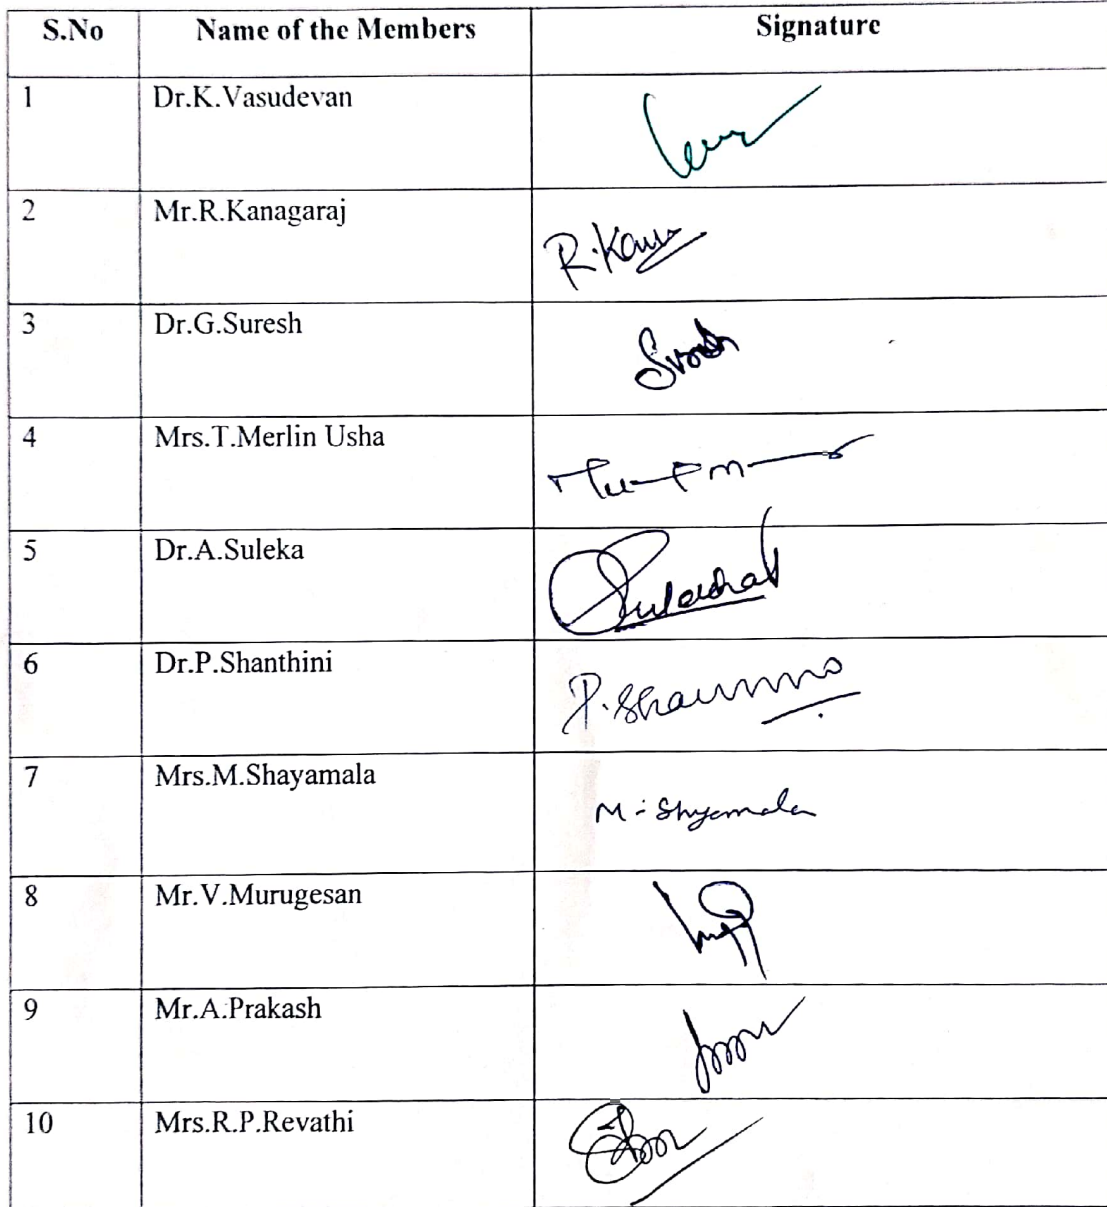 S.No Name of the Members Signature
1 Dr.K.Vasudevan
2 Mr.R.Kanagaraj R.Kan
3 Dr.G.Suresh
4 Mrs.T.Merlin Usha
5 Dr.A.Suleka
6 Dr.P.Shanthini
7 Mrs.M.Shayamala M-Shyamala
8 Mr.V.Murugesan
9 Mr.A.Prakash
10 Mrs.R.P.Revathi